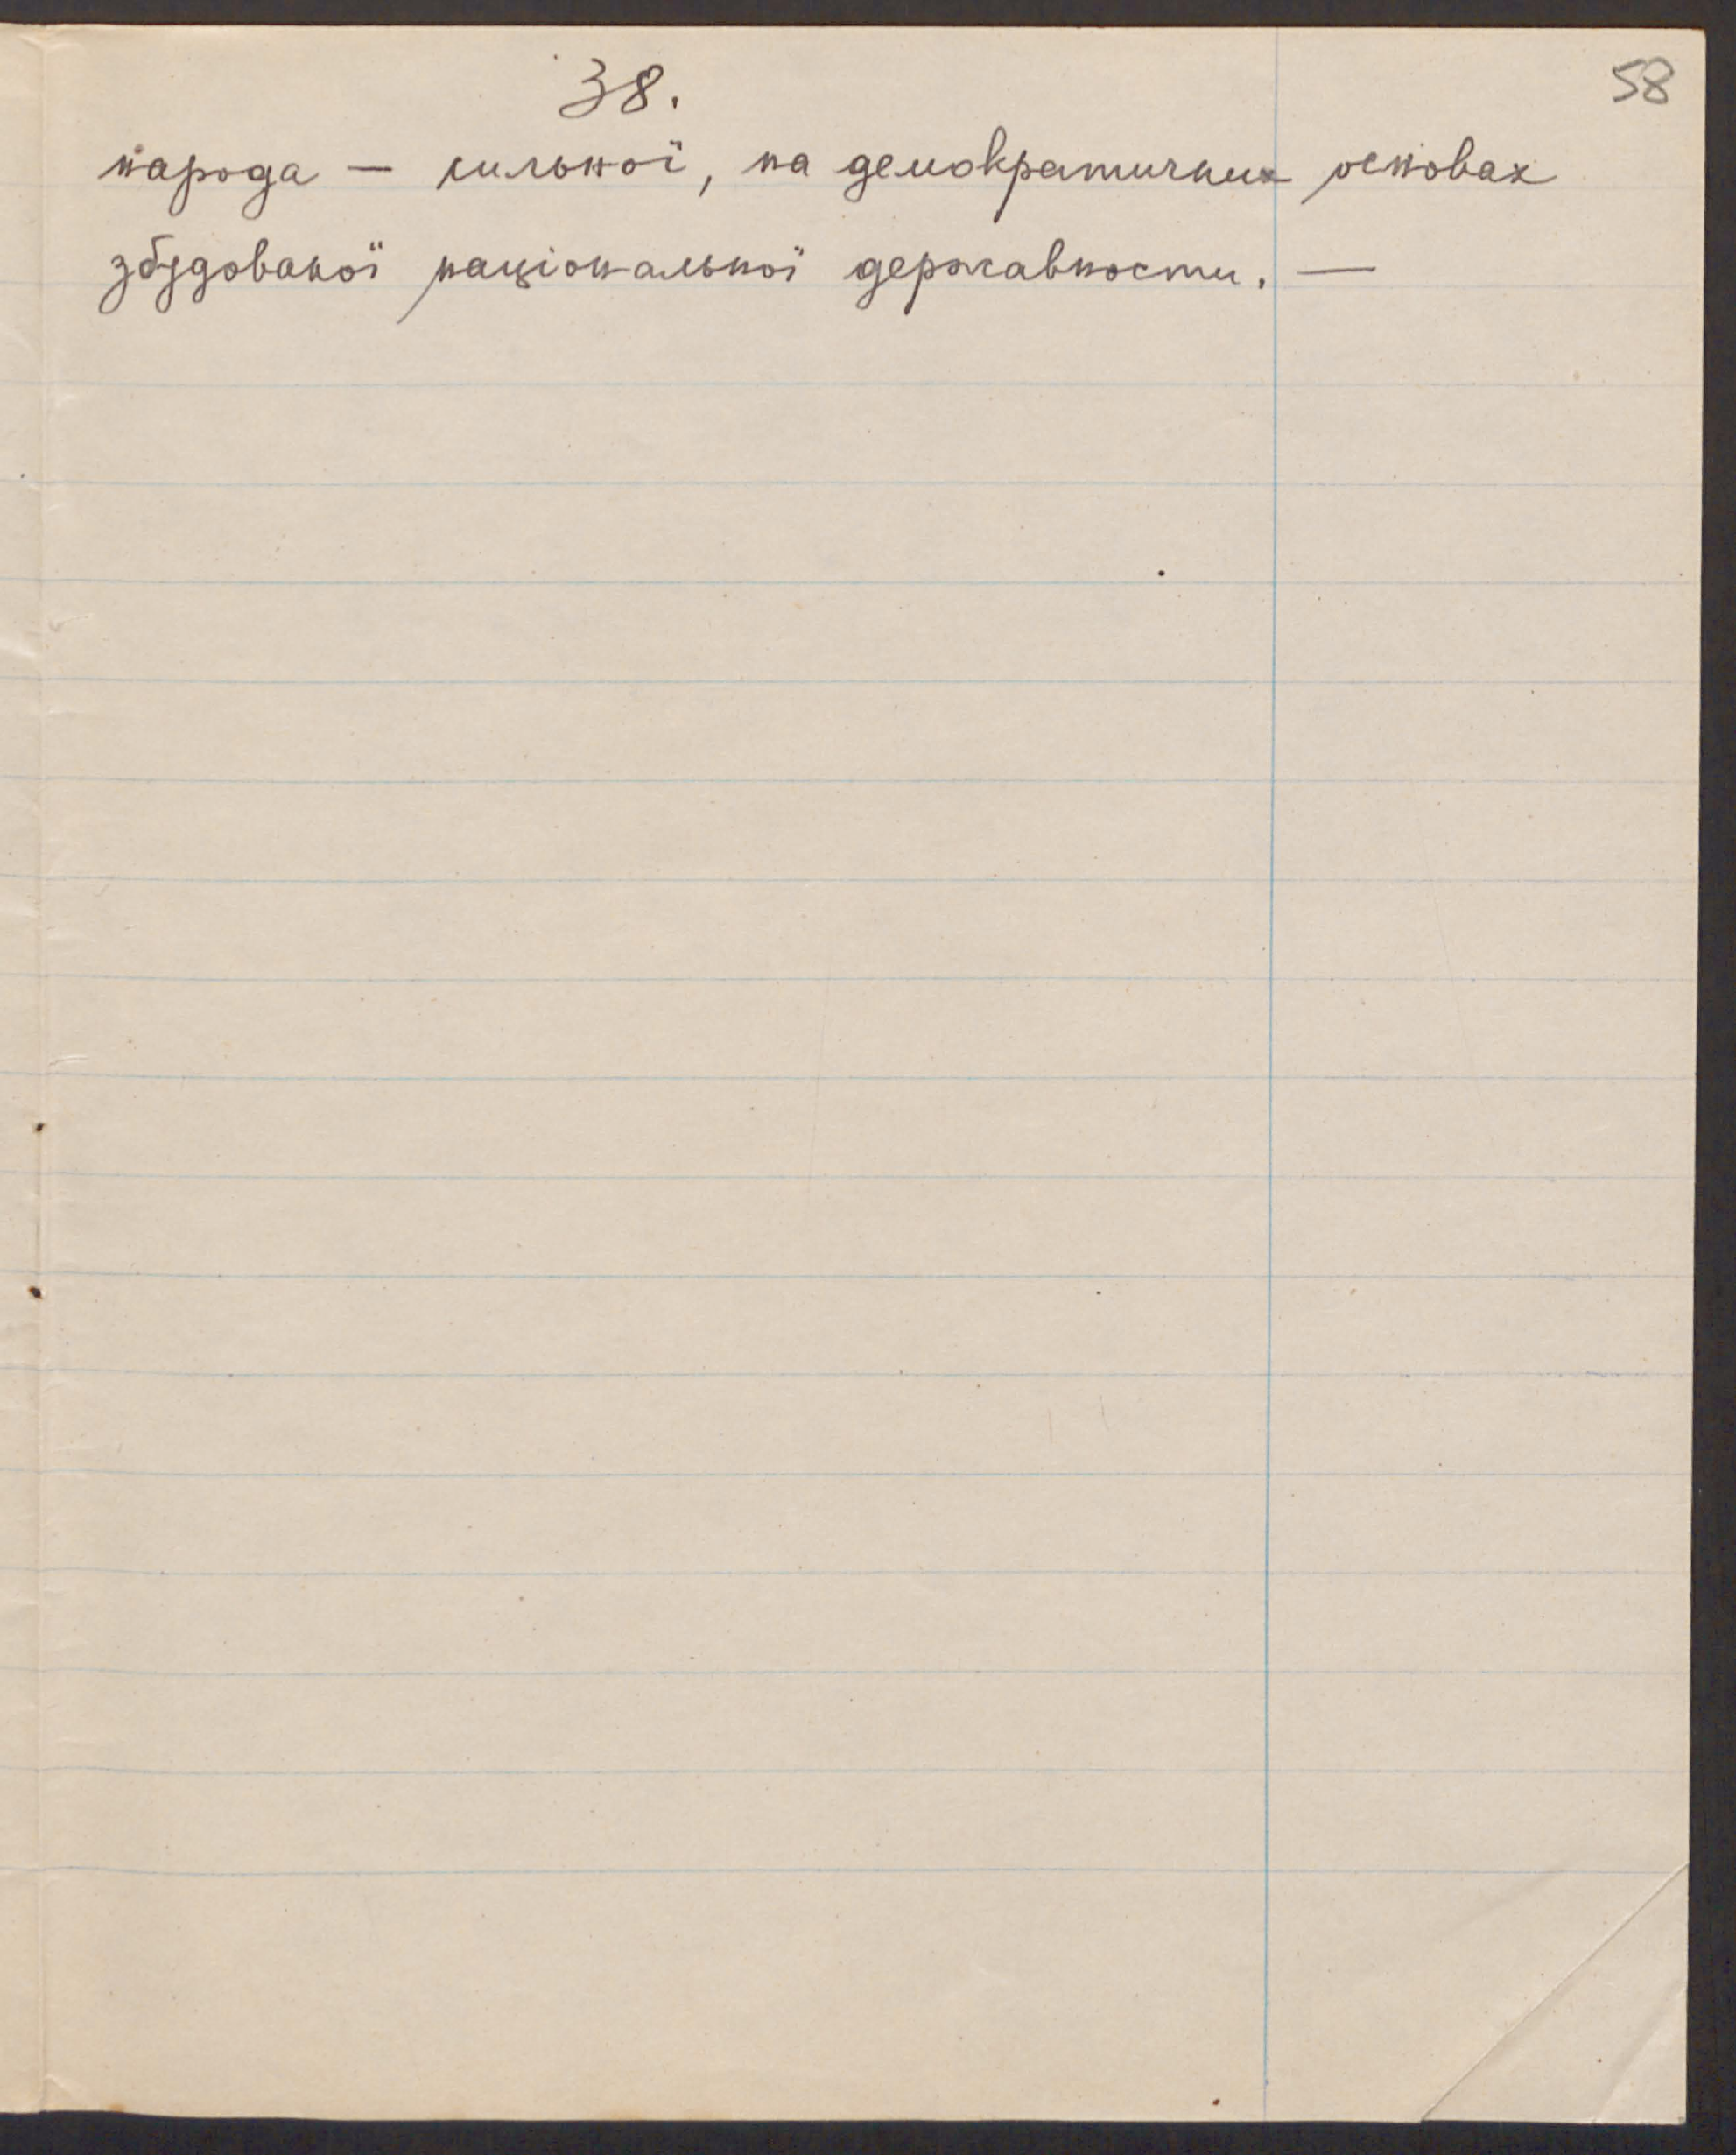 38.
58
народа — сильної, на демократичних основах
збудованої національної державности. —